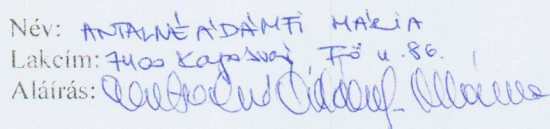 Név: ANTALNÉ ÁDÁMFI MÁRIA
Lakcím: 7400 Kaposvár Fő u. 86.
Aláírás: Antalné Ádámfi Mária